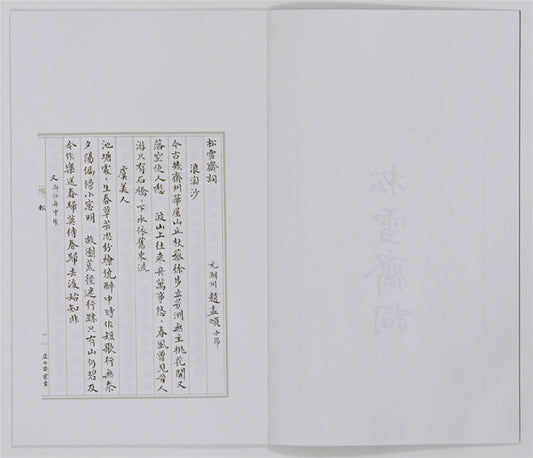 松雪齋詞
松雪齋詞
元 湖州 趙孟頫 子昂
浪淘沙
今古幾齊州華屋山丘杖藜徐步立芳洲無主桃花開又
落空使人愁 波上往來舟萬事悠〻春風曾見昔人
游只有石橋〻下水依舊東流
虞美人
池塘處〻生春草芳思紛繚繞醉中時作短歌行無奈
夕陽偏傍小窗明 故園荒徑迷行跡只有山仍碧及
今作樂送春歸莫待春歸去後始知非
又 浙江舟中作
松
一